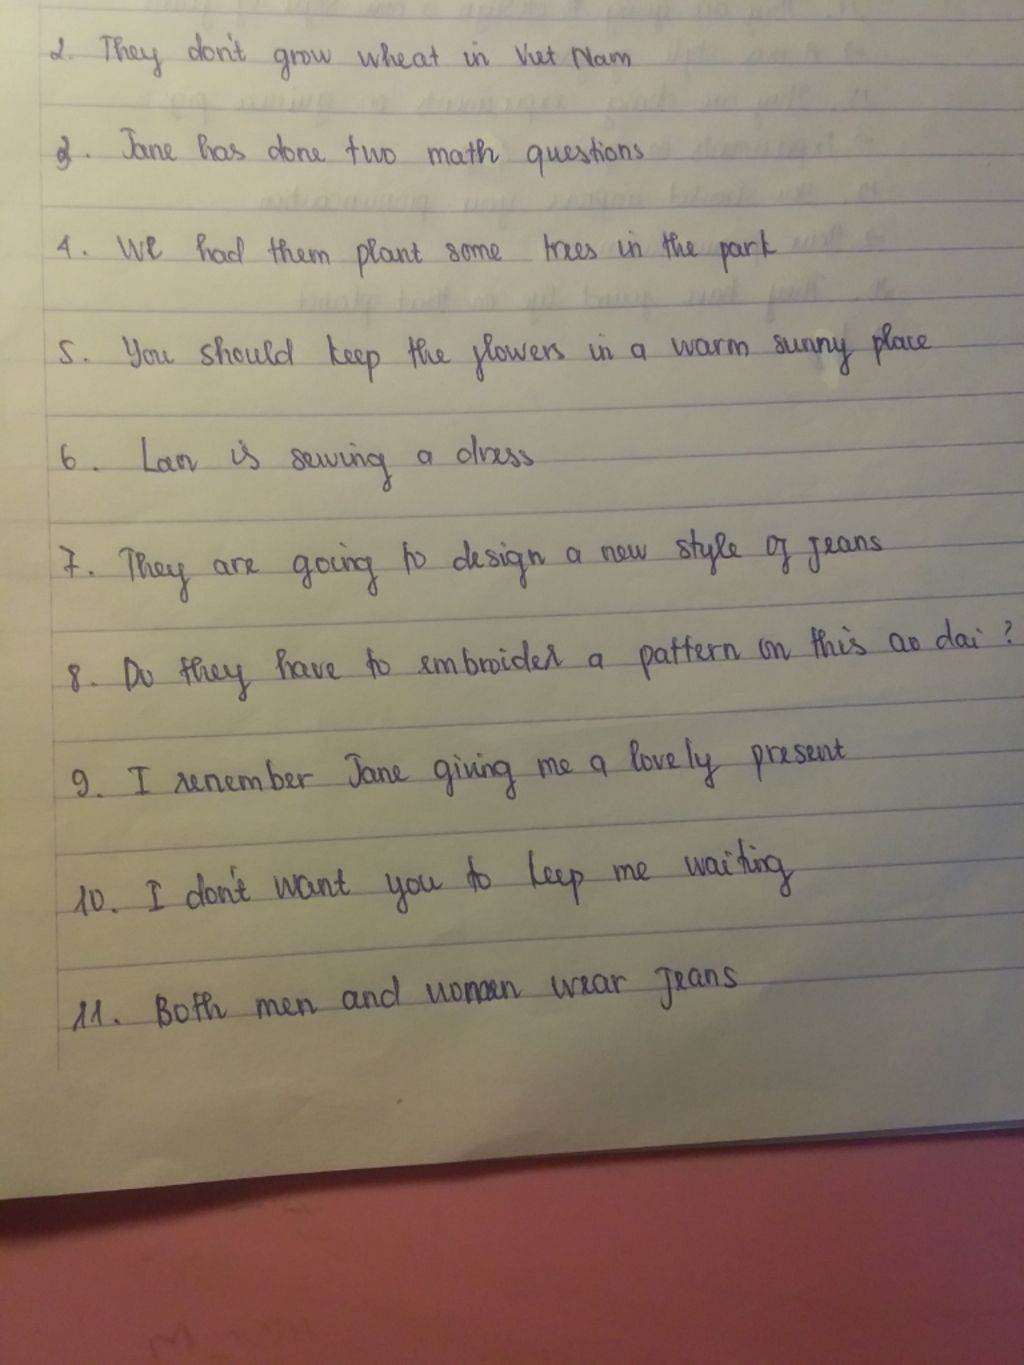 2. They don't grow wheat in Viet Nam
3. Jane has done two math questions
4. We had them plant some trees in the park
5. You should keep the flowers in a warm sunny place
6. Lan is sewing a dress
7. They are going to design a new style of jeans
8. Do they have to embroider a pattern on this ao dai ?
9. I renember Jane giving me a lovely present
10. I don't want you to keep me waiting
11. Both men and women wear jeans